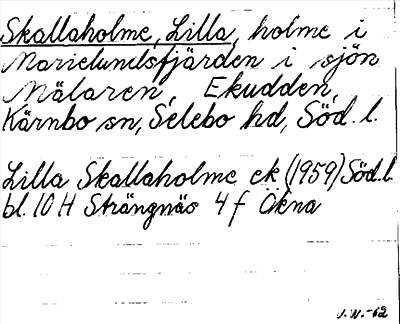 Skallaholme, Lilla, holme i
Marielundsfjärden i sjön
Mälaren, Ekudden,
Kärnbo sn, Selebo hd, Söd. l.
Lilla Skallaholme ek (1959) Söd. l.
bl. 10 H Strängnäs 4 f Åkna
J.N.-62